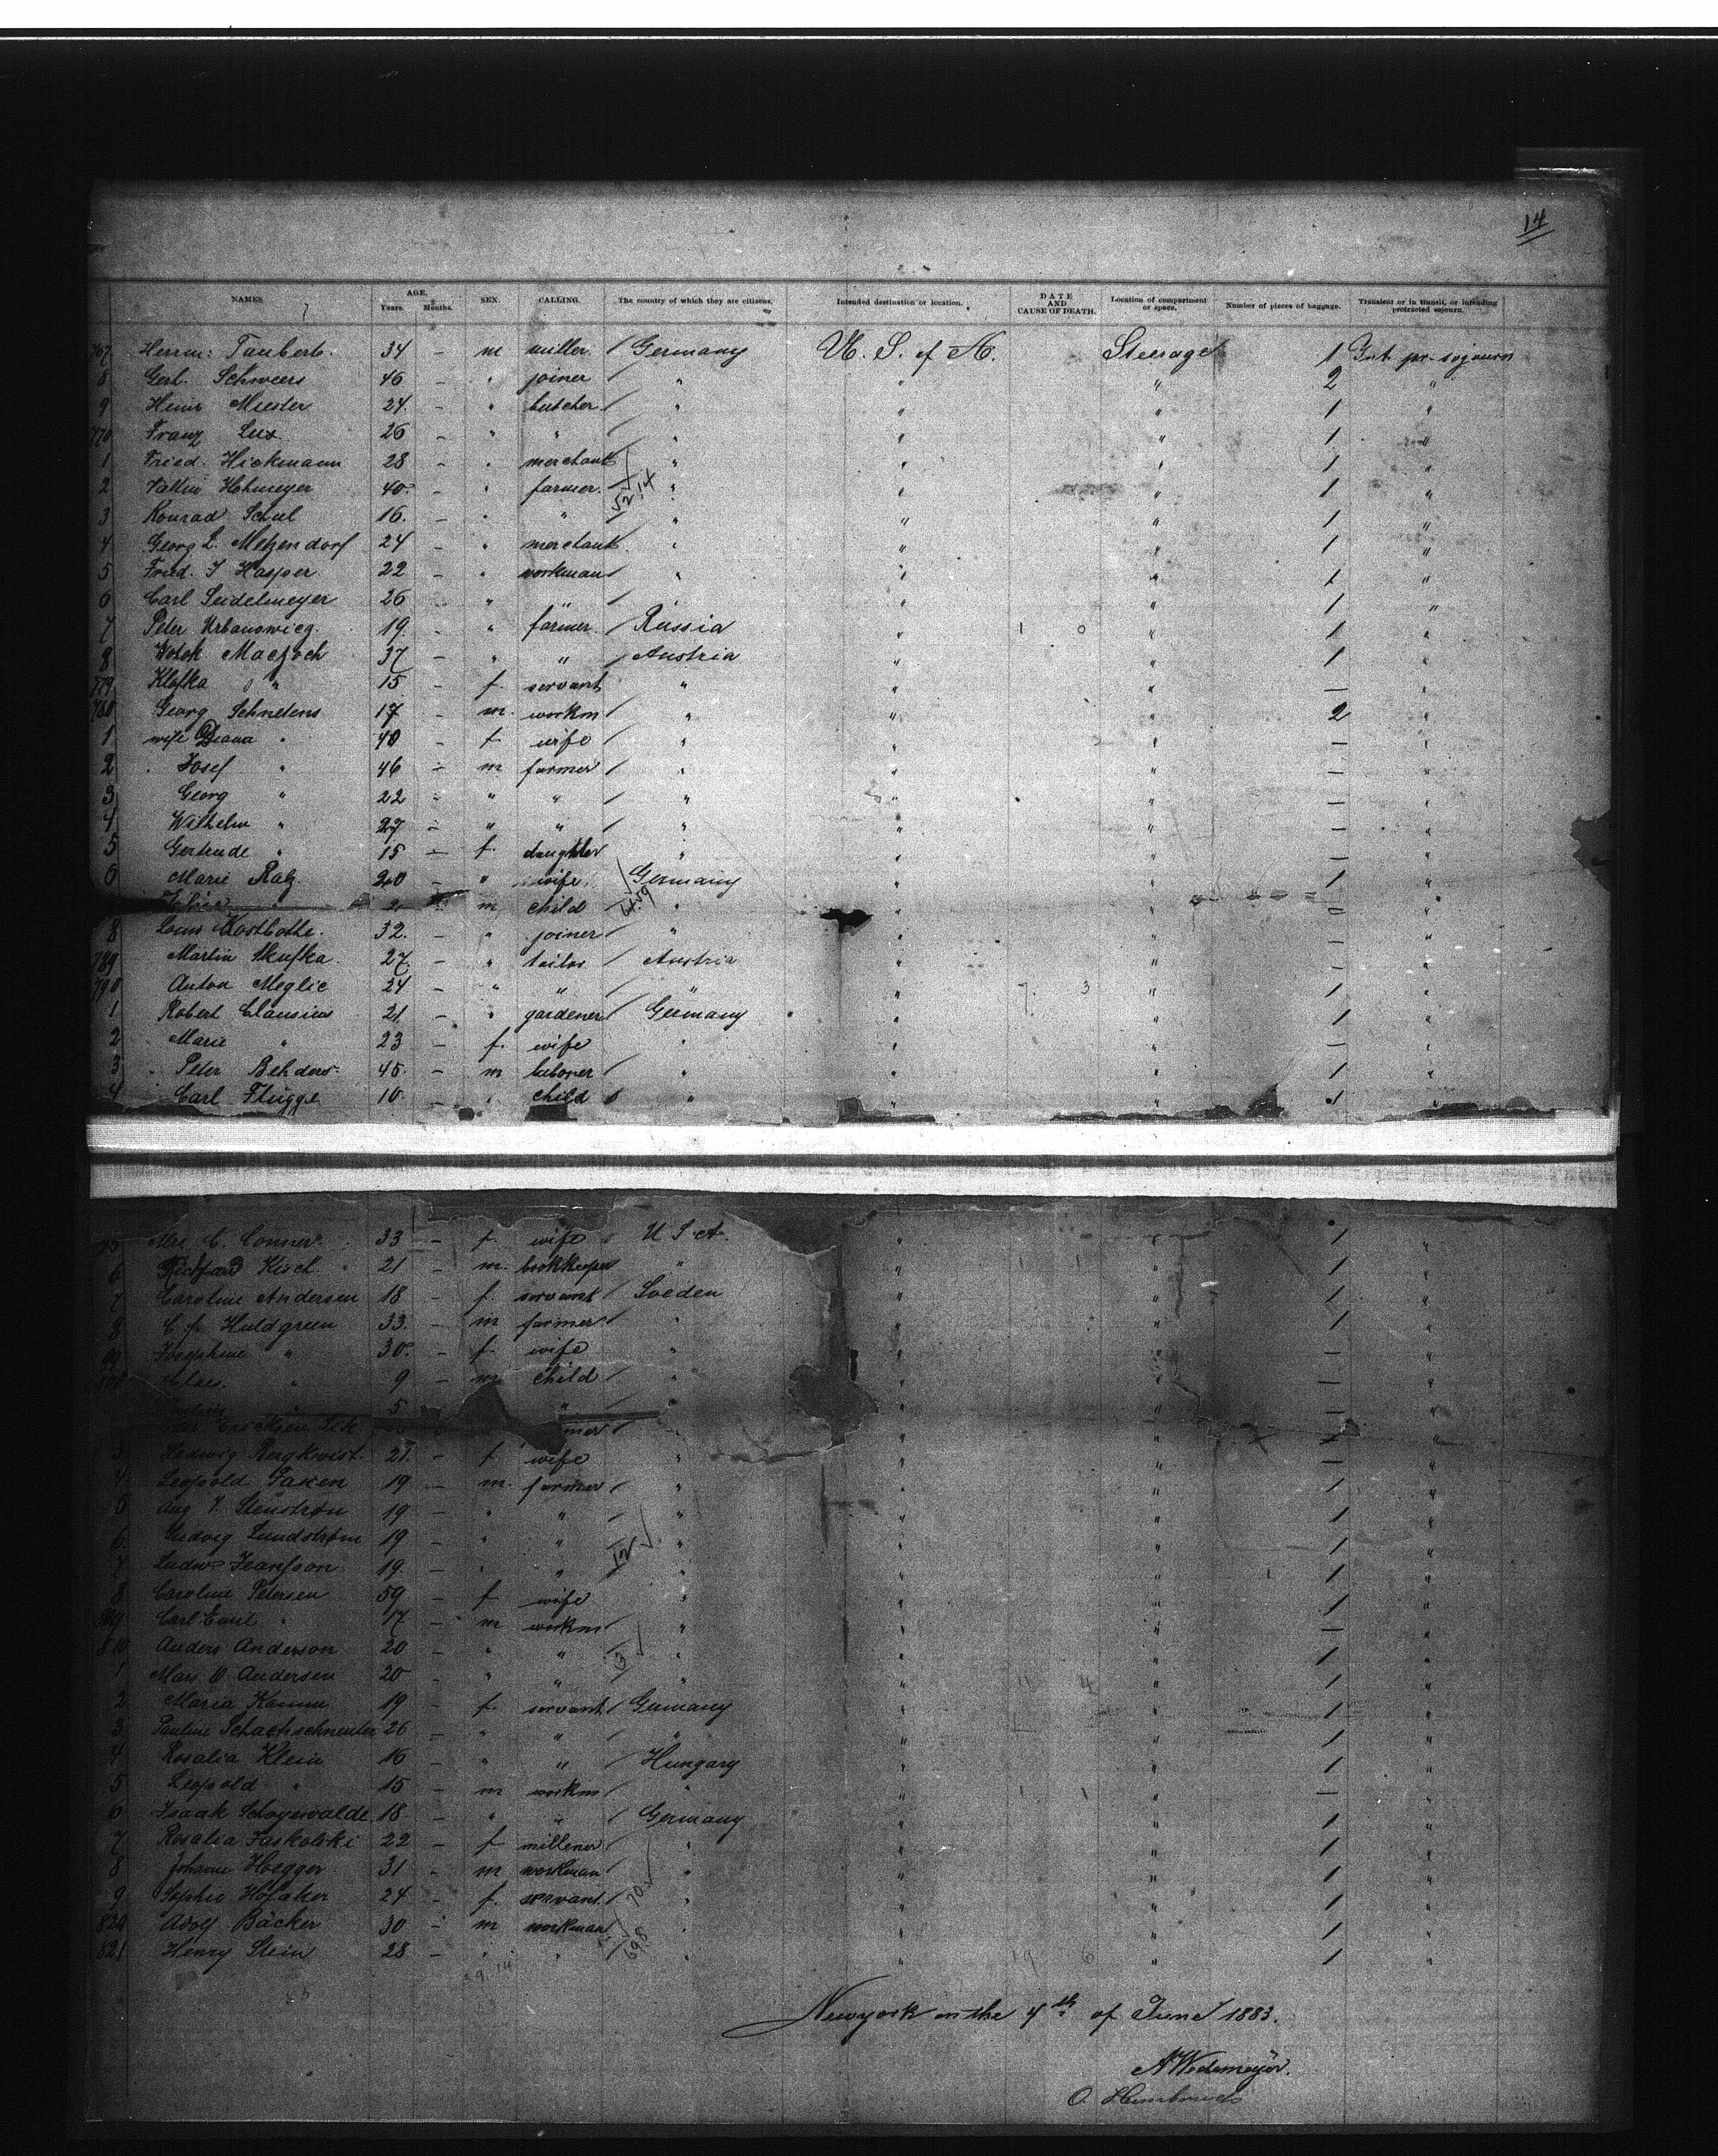 14
NAMES. AGE. Years. Months. SEX. CALLING. The country of which they are citizens. Intended destination or location. DATE AND CAUSE OF DEATH. Location of compartment or space. Number of pieces of baggage. Transient or in transit, or intending protracted sojourn.
767 Herm: Taubert. 34 – m miller Germany U. S. of A. Steerage 1 Int. pr. sojourn
8 Gerh. Schweers 46 – " joiner " " " 2 "
9 Heinr Miester 24. – " butcher " " " 1 "
770 Franz Lux 26 – " " " " " 1 "
1 Fried. Hickmann 28 – " merchant " " " 1 "
2 Hohmeyer 40. – " farmer. " " " 1 "
3 Konrad Schul 16. – " " " " " 1 "
4 Georg L. Metzendorf 24 – " merchant " " " 1 "
5 Fried. J Hasper 22 – " workman " " " 1 "
6 Carl Seidelmeyer 26 – " " " " " 1 "
7 Peter 19 – " farmer Russia " " 1 "
8 37 – " " Austria " " 1 "
779 Klafka " 15 – f. servant " " " – "
780 Georg Schnelens 17 – m. workm " " " 2 "
1 wife Diana " 40 – f wife " " " – "
2 Josef " 46 – m farmer " " " – "
3 Georg " 22 – " " " " " – "
4 Wilhelm " 27 – " " " " " – "
5 Gertrude " 15 – f. daughter " " " – "
6 Marie Ratz 20 – " wife Germany " " 1 "
" 2 m child " " " – "
8 Louis 32. – " joiner " " " – "
789 Martin Skufka. 27. – " tailor Austria " " – "
790 Anton Meglic 24 – " " " " " 1 "
1 Robert Clausius 21 – " gardener Germany " " 1 "
2 Marie " 23 – f. wife " " " – "
3 Peter Behders 45. – m laborer " " " 1 "
4 Carl Flügge 10 – " child " " " 1 "
Mrs C. Conner 33 – f wife U S A. " " 1 "
6 Richard Kisch. 21 – m. bookkeeper " " " 1 "
7 Caroline Andersen 18 – f. servant Sveden " " 1 "
8 Huldgreen 33. – m farmer " " " 1 "
99 Josephine " 30. – f. wife " " " – "
Claes. " 9 – m child " " " – "
" 5 " " " " – "
Ericksen
3 Hedwig Bergkvist. 21. – f wife " " " – "
4 Leopold 19 – m. farmer " " " 1 "
5 Aug Stenstrøm 19 – " " " " " 1 "
6 Ludvig Lundstrøm 19 – " " " " " 1 "
7 Ludw Jeansson 19. – " " " " " 1 "
8 Caroline Petersen 59 – f wife " " " 1 "
809 Carl Emil " 17 – m workm " " " – "
810 Anders Anderson 20 – " " " " " 1 "
1 Mars O Andersen 20 – " " " " " 1 "
2 Maria Kamm 19 – f. servant Germany " " 1 "
3 Pauline 26 – " " " " " 1 "
4 Rosalia Klein 16 – " " Hungary " " 1 "
5 Leopold " 15 – m workm " " " – "
6 Isaak 18. – " " Germany " " 1 "
7 Rosalia Jaskolski 22 – f millener " " " 1 "
8 Johann Hoegger 31 – m workman " " " 1 "
9 Sophie Hofaker 24. – f. servant " " " 1 "
820 Adolf Bäcker 30 – m workman " " " 1 "
821 Henry Stein 28 – " " " " " 1 "
Newyork on the 4th of June 1883.
A Wedemeyer.